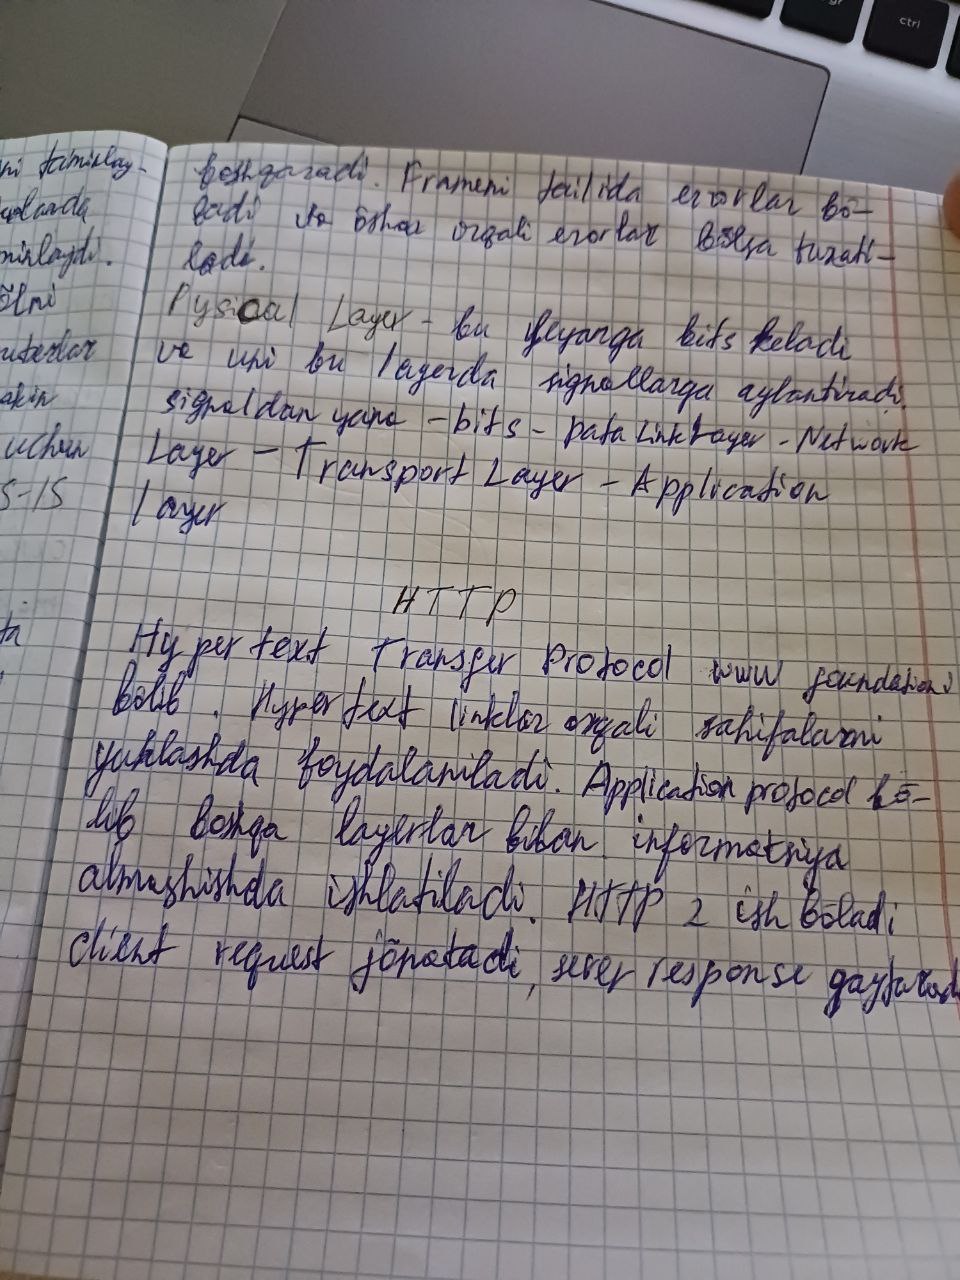 ni tаmirlay-
mirlaydi.
õlni
uterlar
akin
uchun
S-IS
ta
boshqaradi. Frameni tailida erorlar bõ-
ladi va õsha orqali erorlar bõlsa tuzati-
ladi.
Pysical Layer - bu leyarga bits keladi
va uni bu layerda signallarga aylantiradi.
signaldan yana - bits - Data Link Layer - Network
Layer - Transport Layer - Application
layer
HTTP
Hyper text Transfer Protocol www foundationi
bõlib. Hyper text linklar orqali sahifalarni
yuklashda foydalaniladi. Application protocol bõ-
lib boshqa layerlar bilan informatsiya
almashishda ishlatiladi. HTTP 2 ish bõladi
client request jõnatadi, server response qaytaradi